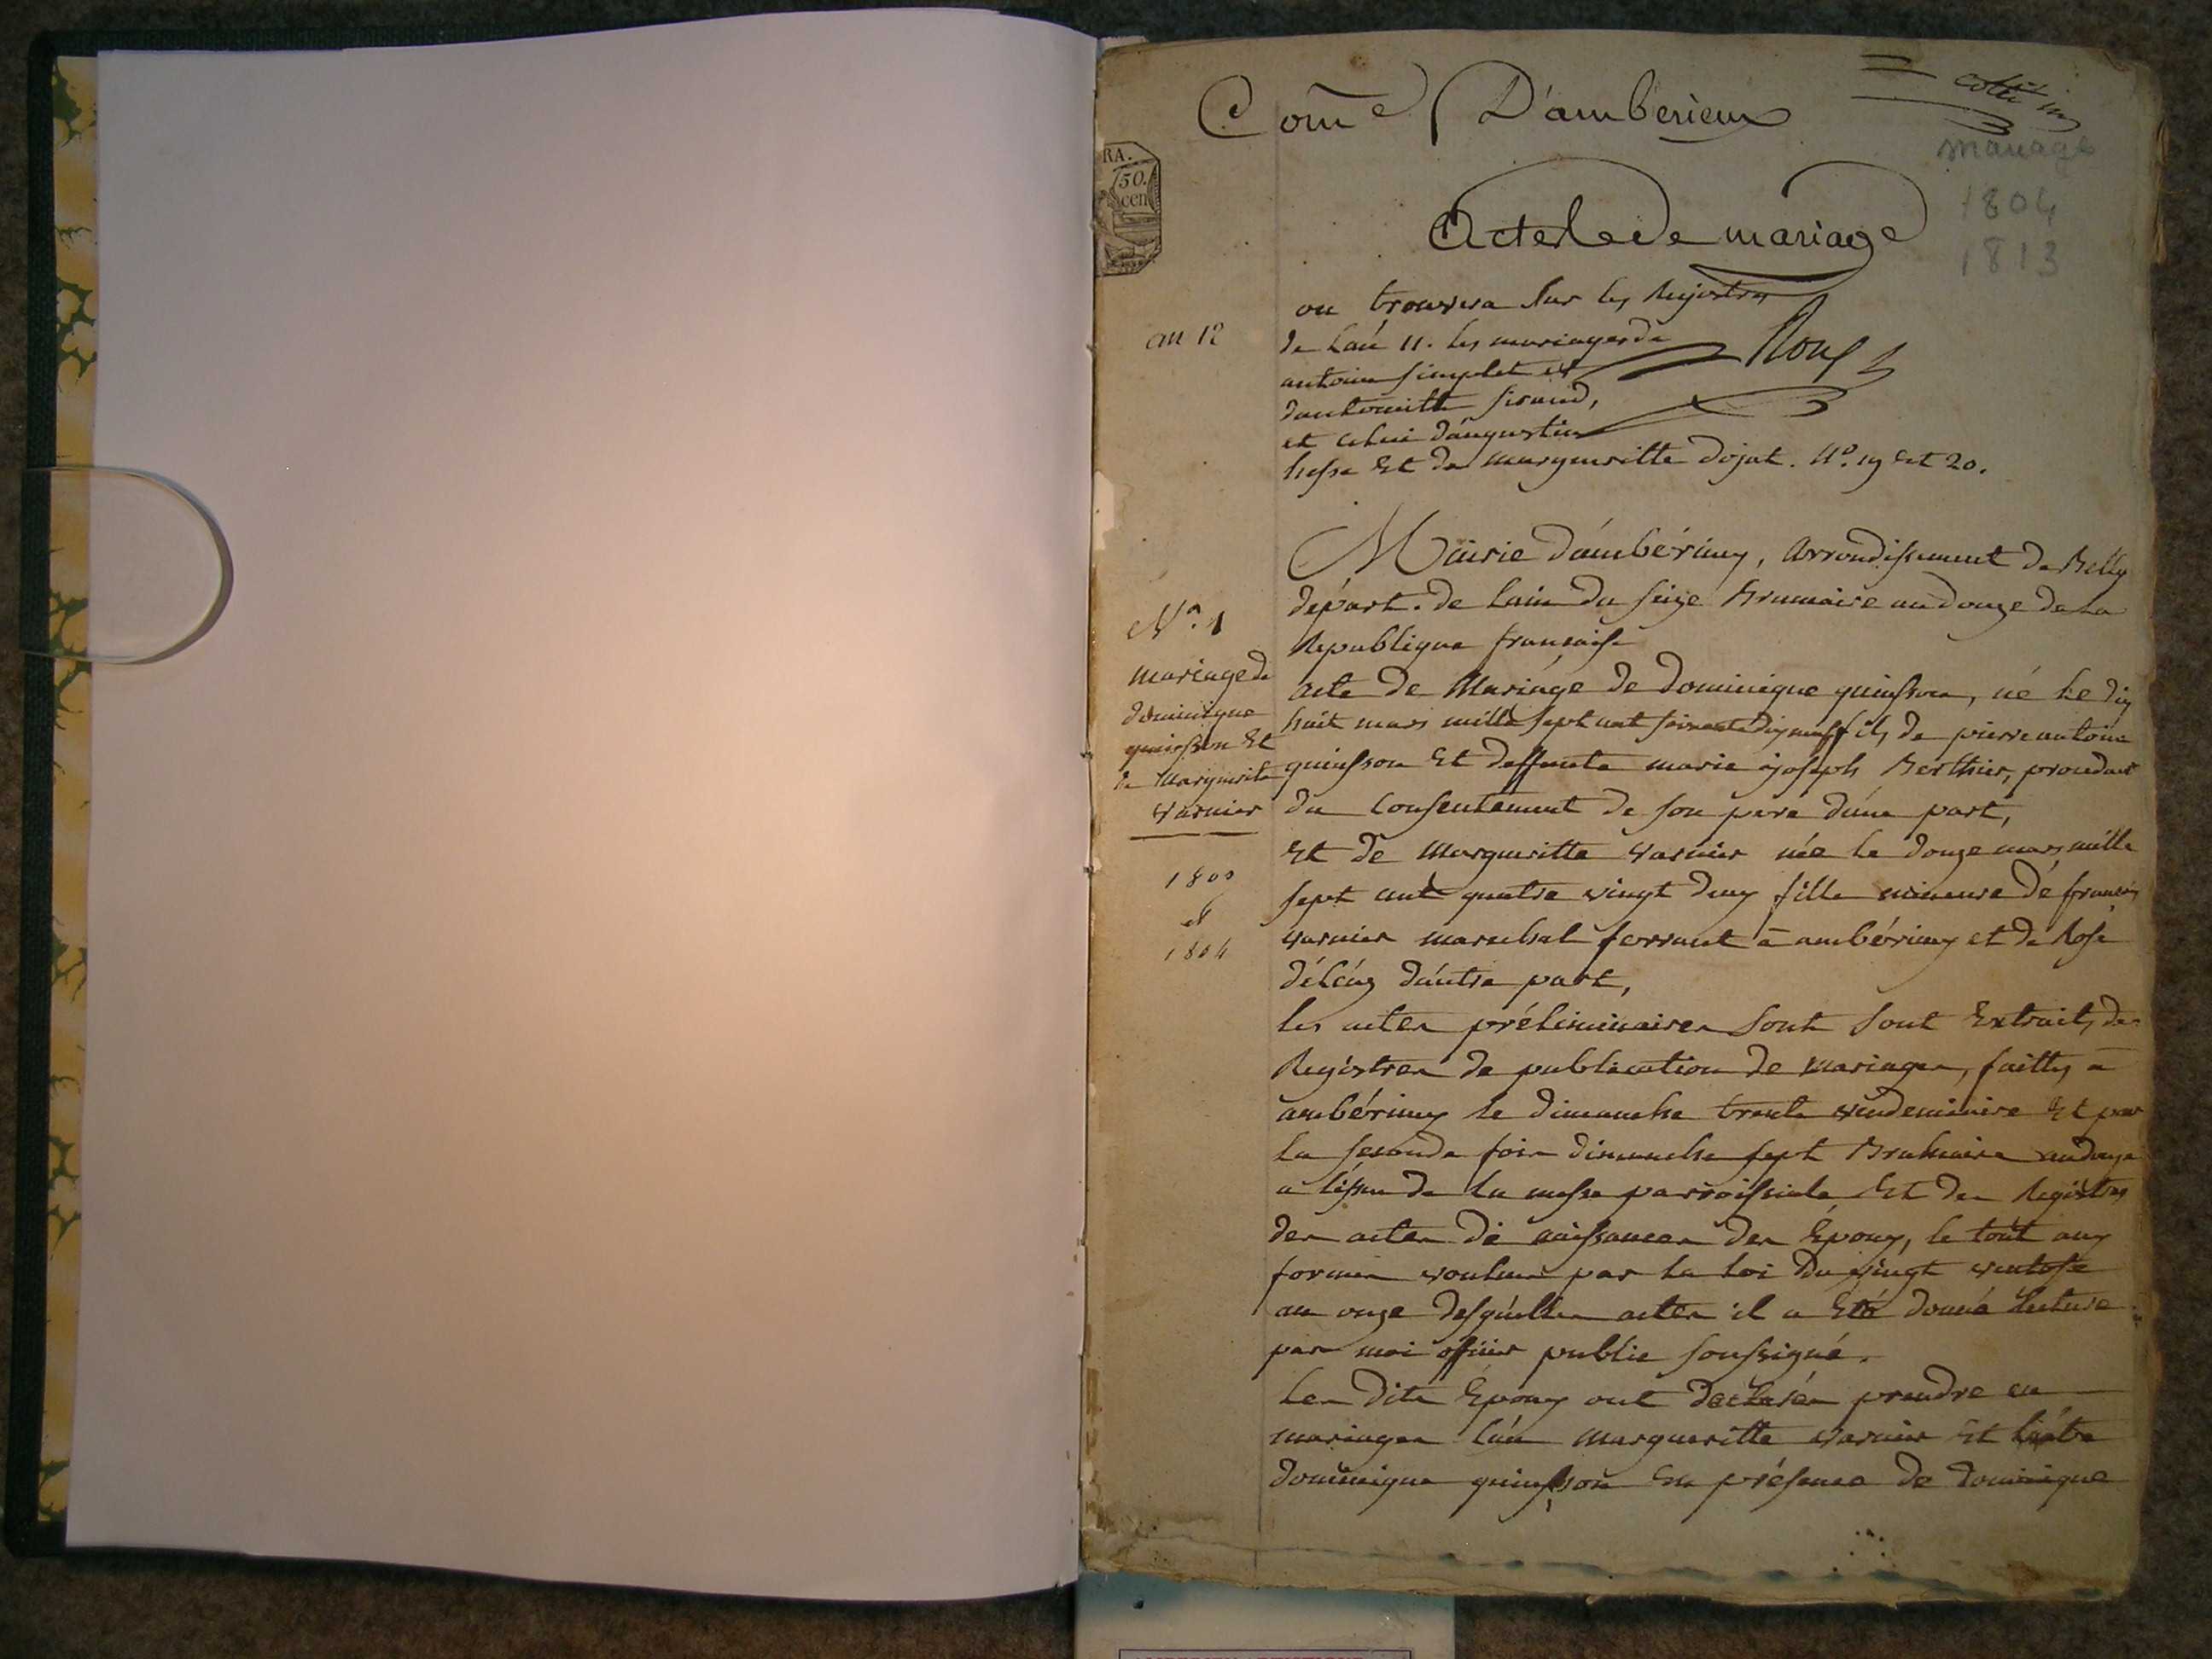 Com̄e D'ambérieux
cotté in
mariage
1804
1813
RA.
50.
cen
Actes de mariage
on trouvera sur les Registres
an 12
de lan 11. les mariages de
antoine simplet et
dantoinette siraud,
et celui d'augustin
hesse Et de margueritte dojat. N°. 19 et 20.
Mairie d'ambérieux, Arrondissement de Belley
départ. de lain du seize Brumaire an douze de la
Republique française
N°. 1
mariage de
dominique
quinsson Et
de Marguerite
varnier
1803
et
1804
acte de Mariage de dominique quinsson, né le dix
huit mars mille sept cent soixante dix neuf fils de pierre antoine
quinsson Et deffunte marie joseph Berthier, procedant
du consentement de son pere d'une part,
Et de Margueritte varnier née le douze mars mille
sept cent quatre vingt deux fille mineure de françois
varnier marechal ferrant à ambérieux et de Rose
d'autre part,
les actes préliminaires sont sont Extraits des
Registres de publication de mariages, faittes a
ambérieux le dimanche trente vendemiaire Et pour
la seconde fois dimanche sept Brumaire an douze
a l'issue de la messe parroissiale Et des Registres
des actes de naissances des Époux, le tout aux
formes voulues par la loi du vingt ventose
an onze desquelles actes il a Été donné lecture
par moi officier public soussigné.
les dits Époux ont declarés prendre en
mariages l'un Margueritte varnier Et l'autre
dominique quinsson En présence de dominique